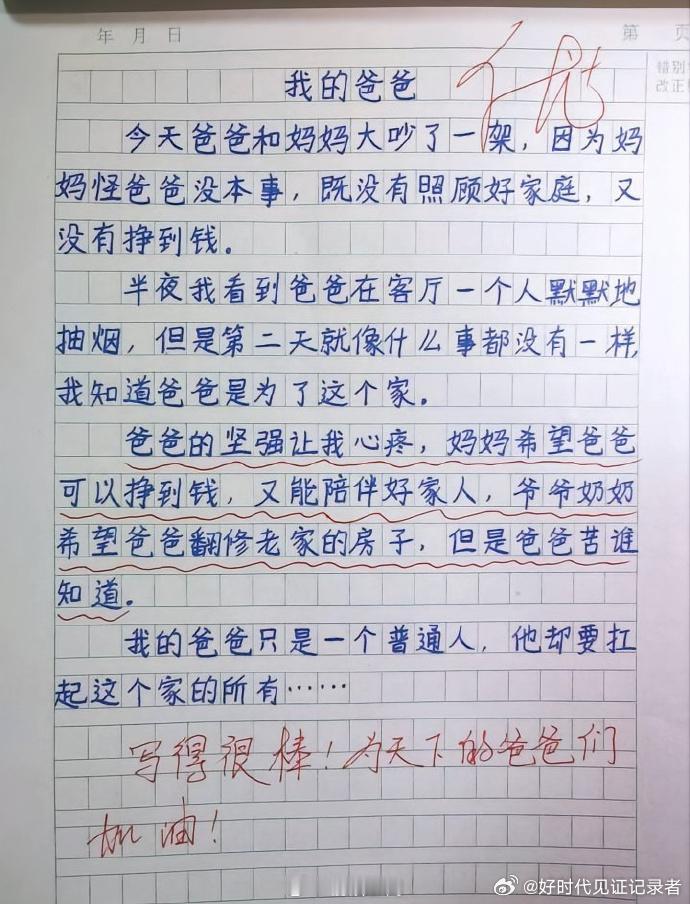 年 月 日 第 页
错别
改正
我的爸爸
今天爸爸和妈妈大吵了一架，因为妈
妈怪爸爸没本事，既没有照顾好家庭，又
没有挣到钱。
半夜我看到爸爸在客厅一个人默默地
抽烟，但是第二天就像什么事都没有一样，
我知道爸爸是为了这个家。
爸爸的坚强让我心疼，妈妈希望爸爸
可以挣到钱，又能陪伴好家人，爷爷奶奶
希望爸爸翻修老家的房子，但是爸爸苦谁
知道。
我的爸爸只是一个普通人，他却要扛
起这个家的所有……
写得很棒！为天下的爸爸们
加油！
@好时代见证记录者